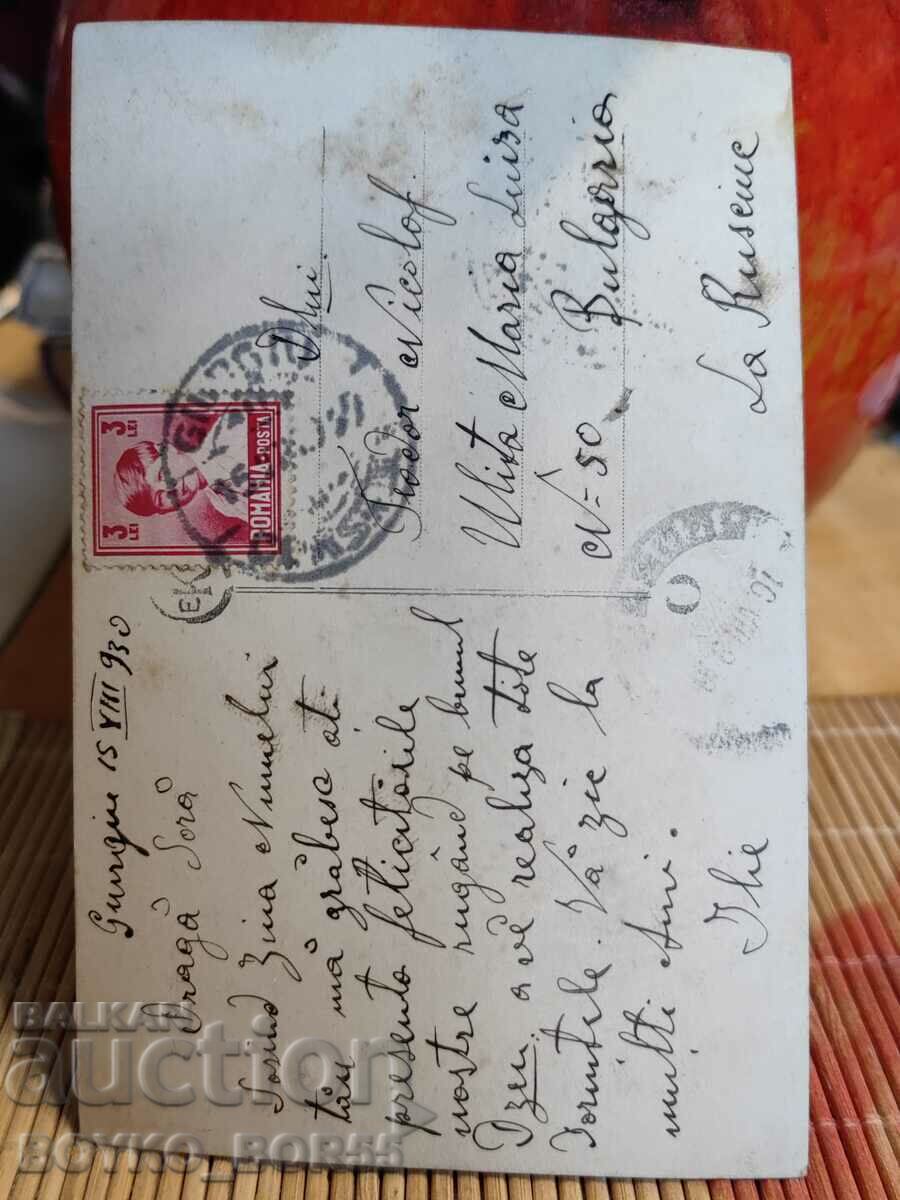 Giurgiu 15 VIII 930
Dragă Soră
Fiind Ziua Numelui
tău mă grăbesc ati
presenta felicitările
nostre rugând pe bunul
Dzeu. a vĕ realiza tóte
Dorințele. Vă zic la
mulți Ani.
Ilie
3 LEI
3 LEI
ROMANIA·POSTA
GIURGIU
Dlui.
Teodor Nicolof.
Ulița Maria Luiza
N=50 Bulgaria
La Rusciuc
BALKAN
auction
BOYKO_BOR55